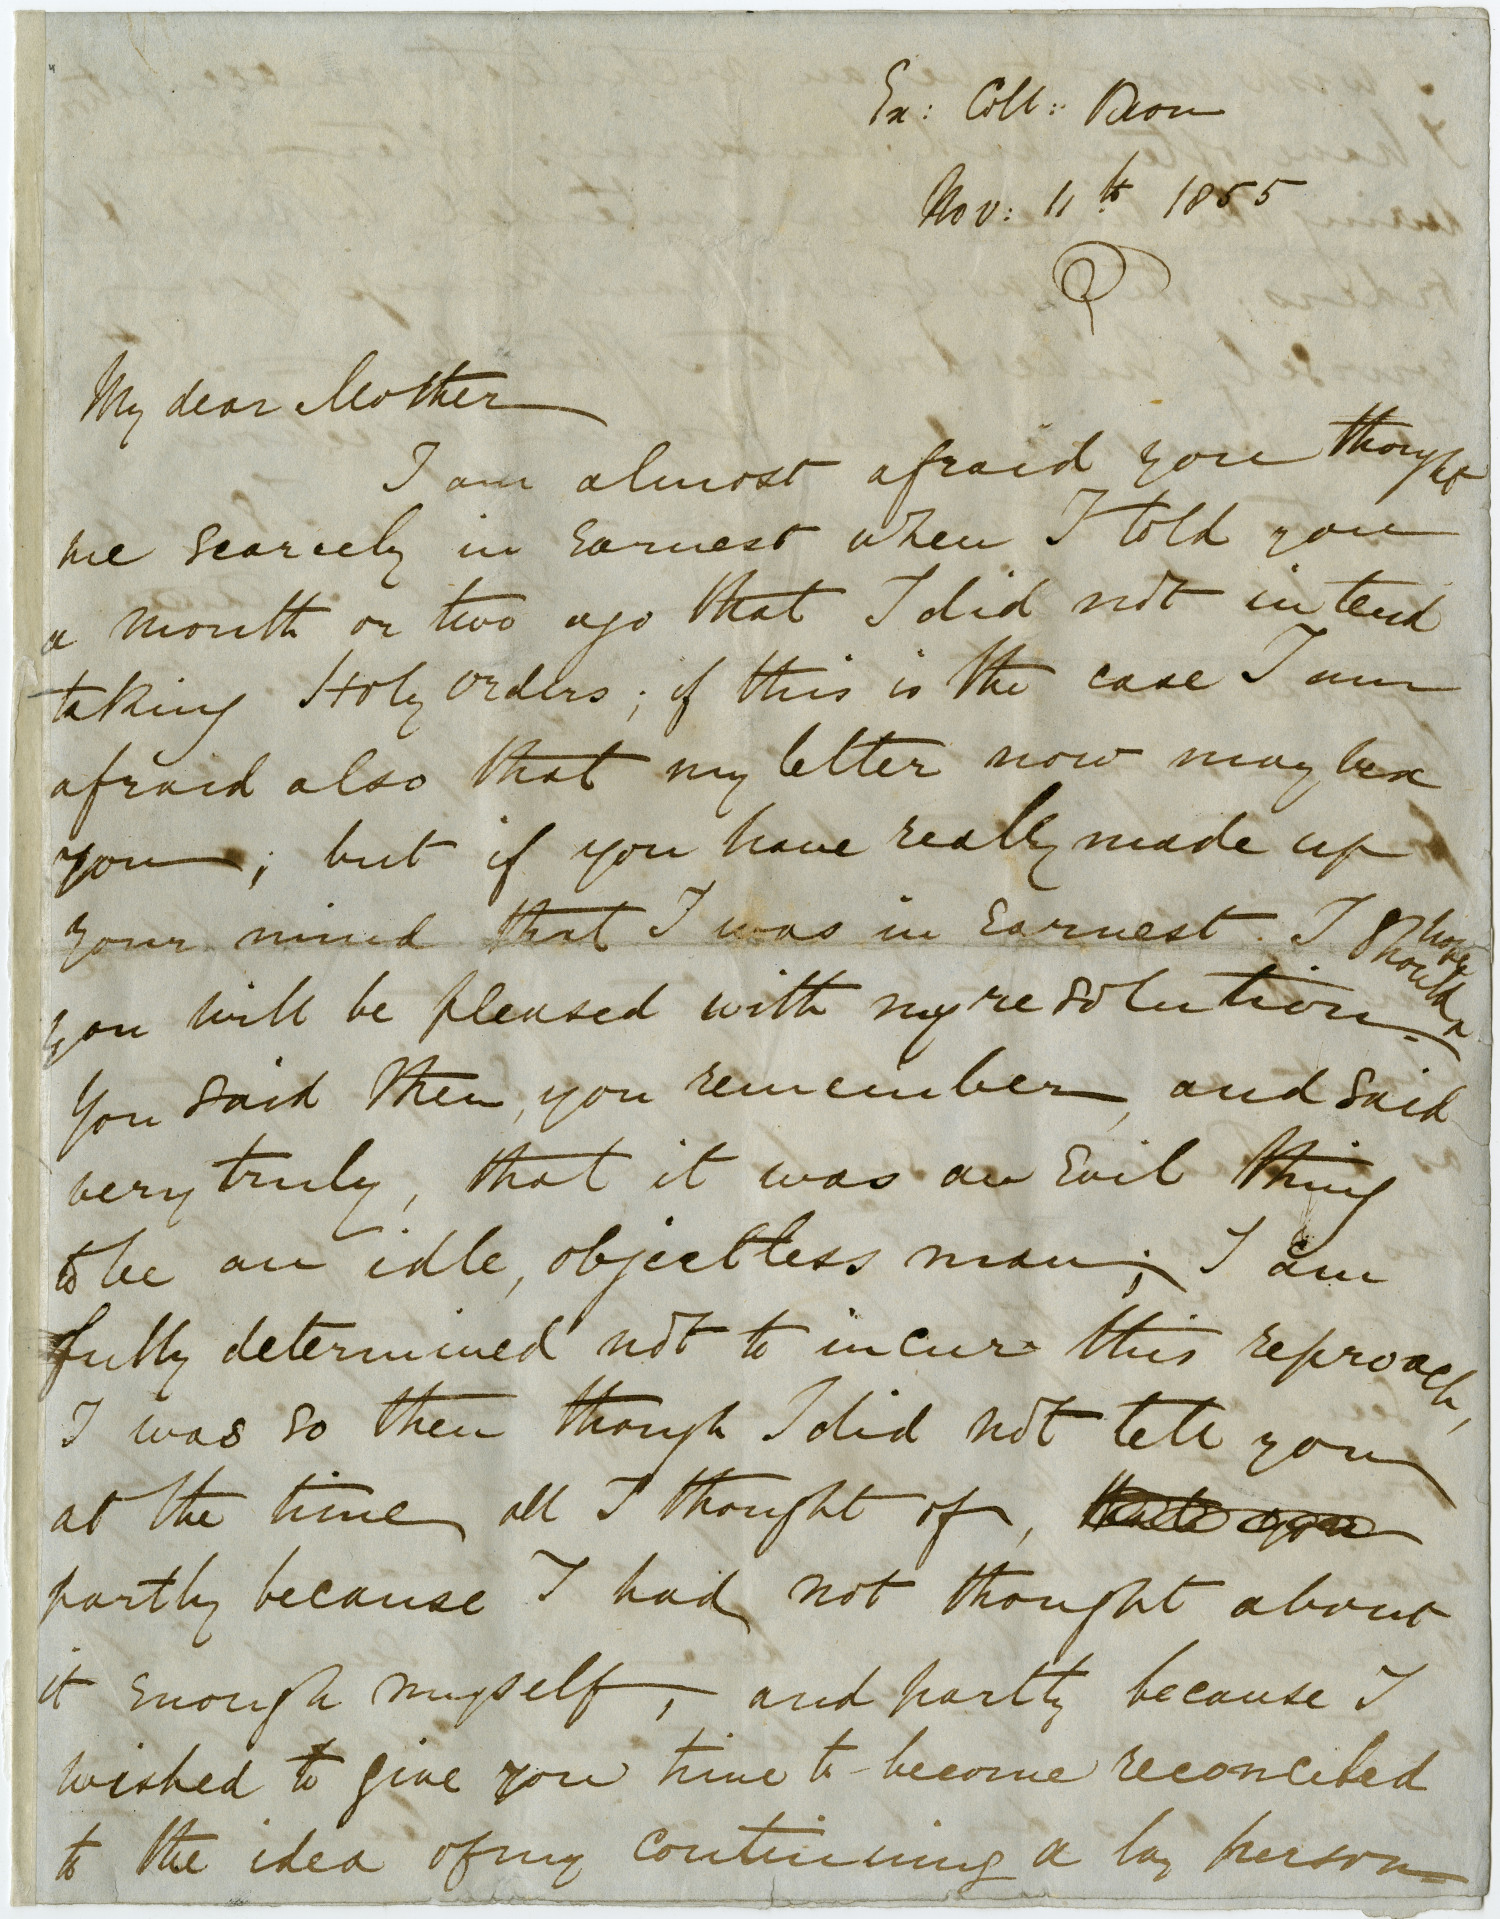 Ex: Coll: Oxon
Nov: 11th 1855
My dear Mother
I am almost afraid you thought
me scarcely in earnest when I told you
a month or two ago that I did not intend
taking Holy orders; if this is the case I am
afraid also that my letter now may vex
you; but if you have really made up
your mind that I was in earnest. I should hope
you will be pleased with my resolution.
You said then, you remember, and said
very truly, that it was an evil thing
to be an idle, objectless man; I am
fully determined not to incur this reproach,
I was so then though I did not tell you
at the time all I thought of,
partly because I had not thought about
it enough myself, and partly because I
wished to give you time to become reconciled
to the idea of my continuing a lay person